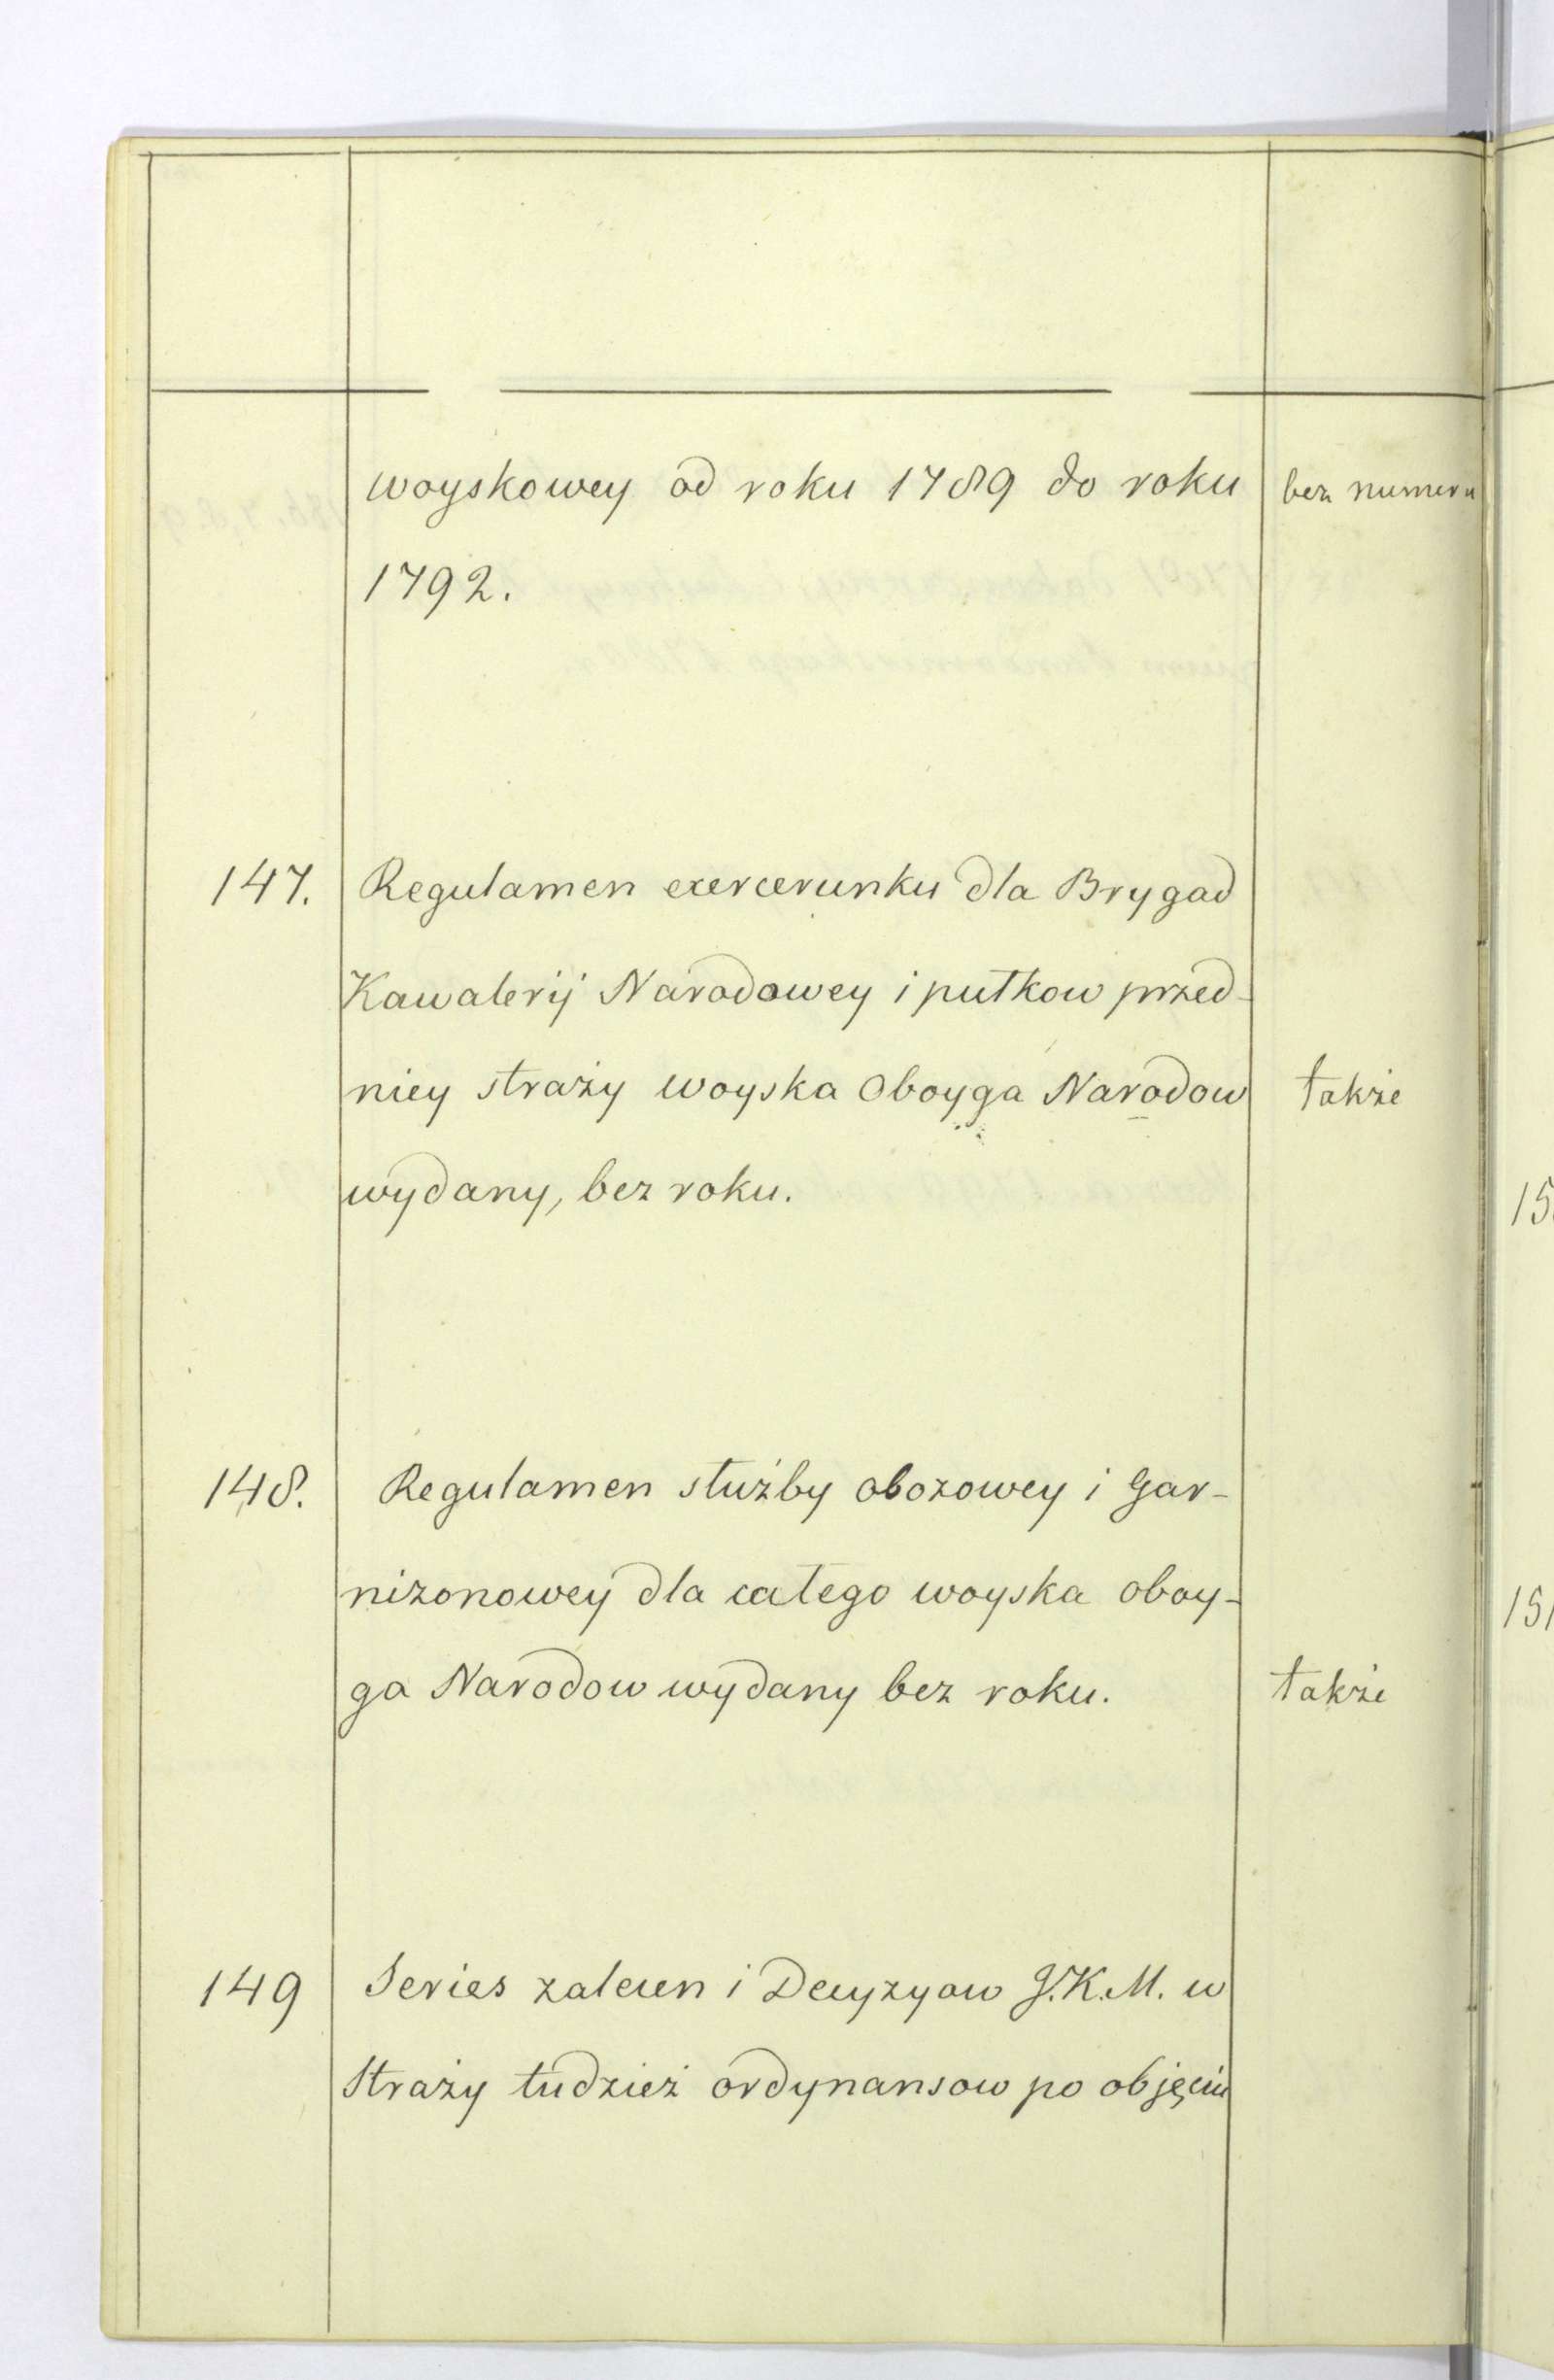 woyskowey od roku 1789 do roku bez numeru
1792.
147. Regulamen exercerunku dla Brygad
Kawaleryi Narodowey i pułkow przed-
niey straży woyska Oboyga Narodow także
wydany, bez roku.
148. Regulamen służby obozowey i Gar-
nizonowey dla całego woyska oboy-
ga Narodow wydany bez roku. także
149 Series zalecen i Decyzyow J.K.M. w
Straży tudzież ordynansow po objęciu
15
151